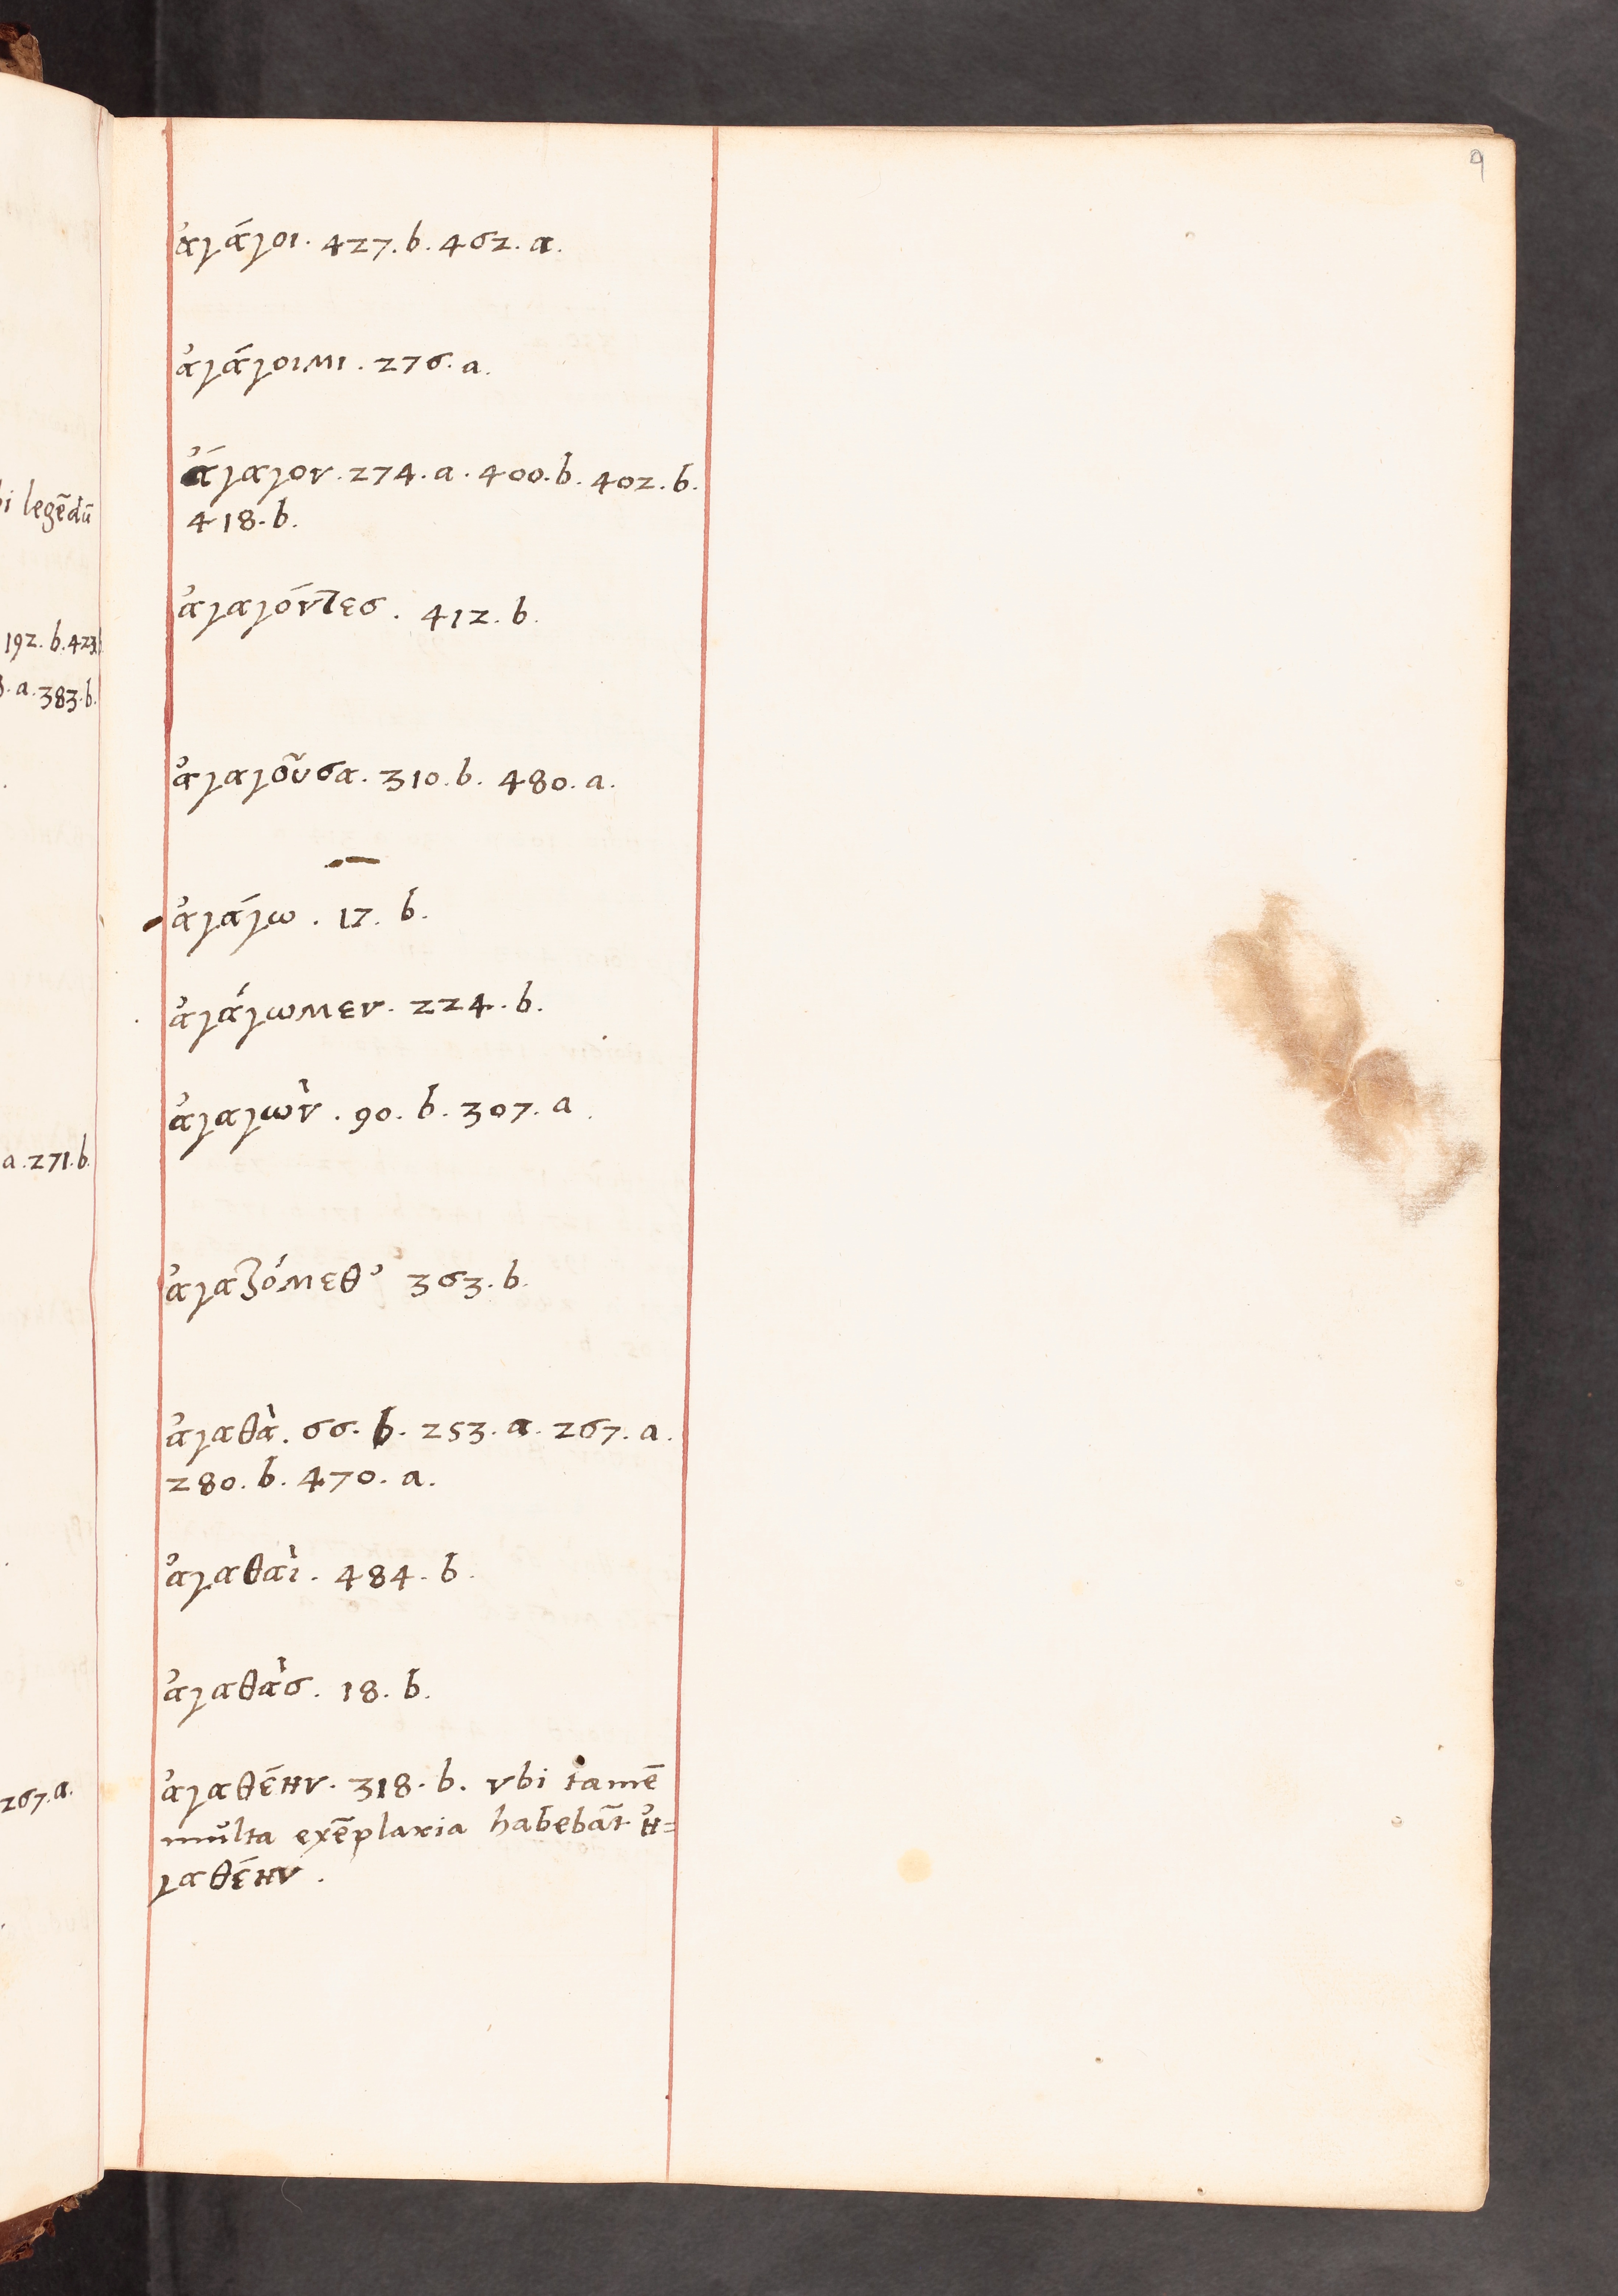 9
ἀγάγοι. 427. b. 462. a.
ἀγάγοιμι. 276. a.
ἄγαγον. 274. a. 400. b. 402. b.
418. b.
ἀγαγόντες. 412. b.
ἀγαγοῦσα. 310. b. 480. a.
ἀγάγω. 17. b.
ἀγάγωμεν. 224. b.
ἀγαγὼν. 90. b. 307. a.
ἀγαζόμεθ' 363. b.
ἀγαθὰ. 66. b. 253. a. 267. a.
280. b. 470. a.
ἀγαθαὶ. 484. b.
ἀγαθὰσ. 18. b.
ἀγαθέην. 318. b. vbi tamē
multa exēplaria habebāt ἠ=
γαθέην.
i legēdū
192. b. 423. b
. a. 383. b.
a. 271. b.
267. a.